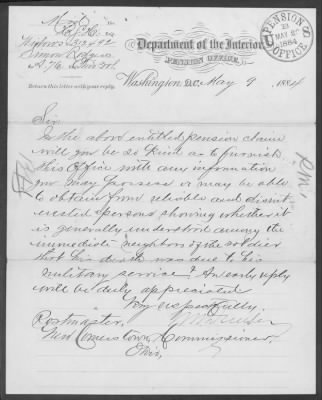 Department of the Interior,
PENSION OFFICE,
Washington, D.C. May 9, 1884
PENSION O
23
MAY 2
1884
Return this letter with your reply.
Sir:
In the above entitled pension claim
will you be so kind as to furnish
this Office with any information
you may possess or may be able
to obtain from reliable and disint-
erested persons showing whether it
is generally understood among the
immediate neighbors of the soldier
that his death was due to his
military service? An early reply
will be duly appreciated
Very respectfully,
Postmaster,
New Comerstown, Commissioner.
Ohio.
P.M.